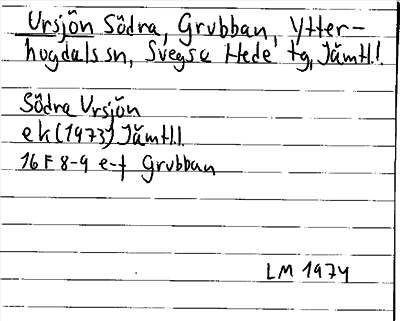 Ursjön Södra, Grubban, Ytter-
hogdals sn, Svegs o Hede tg, Jämtl.
Södra Ursjön
ek (1973) Jämtl
16 F 8-9 e-f Grubban
LM 1974